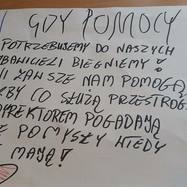 GDY POMOCY
POTRZEBUJEMY DO NASZYCH
BIEGNIEMY!
ZAWSZE NAM POMOGĄ
BY CO SŁUŻĄ PRZESTROGĄ
POGADAJĄ
POMYSŁY WTEDY
MAJĄ!